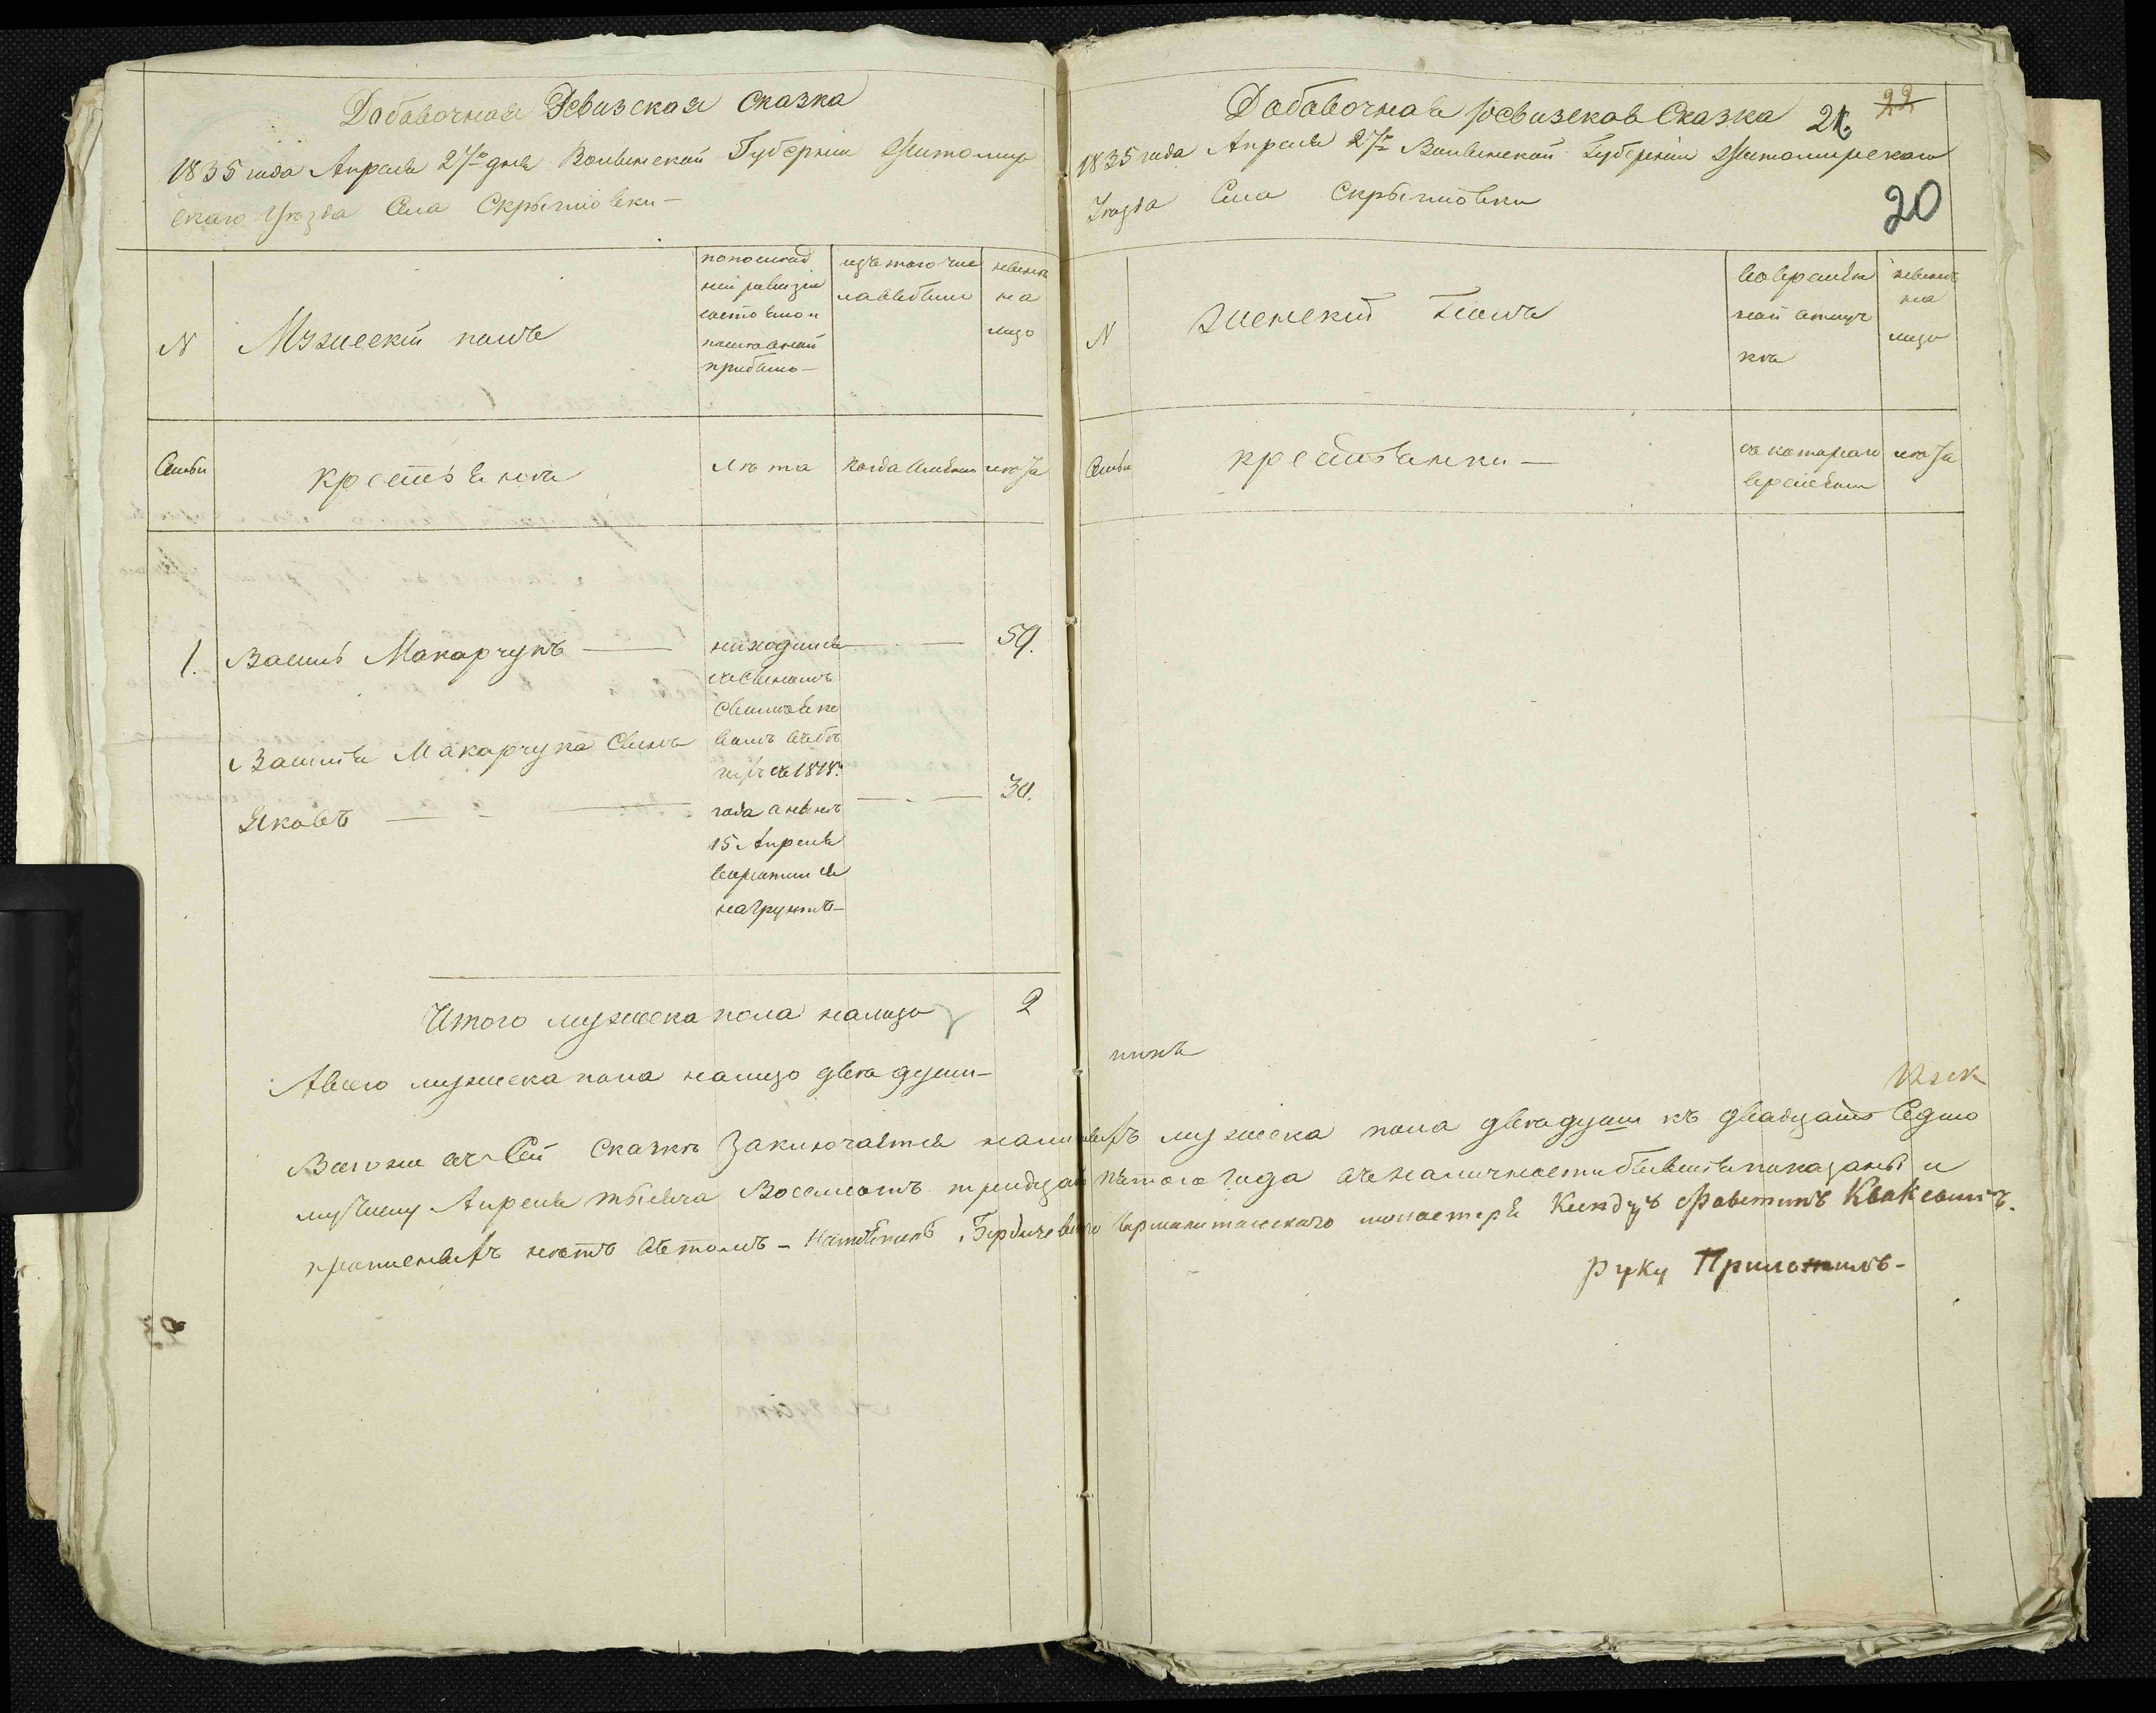 Добавочная Ревизская Сказка
1835 года Апреля 27го дня Волынской Губернии Житомир
скаго Уезда Села Скрыгловки —
N
Мужеский полъ
по послед
ней ревизии
состояло и
после оной
прибыло —
изъ того чис
ла выбыли
ныне
на
лицо
Семьи
крестьяне
лета
когда именно
лета
1.
Василь Макарчукъ
находился
съ сыномъ
въ бе
гахъ съ 1818.
года а ныне
15 Апреля
воротился
на грунтъ —
59.
Василя Макарчука сынъ
Яковъ
30.
Итого мужеска пола налицо 2
А всего мужеска пола налицо две души —
23
Добавочная Ревизская Сказка 21. 22
1835 года Апреля 27го Волынской Губернии Житомирскаго
Уезда Села Скрыгловки
20
N
Женский полъ
во времен
ной отлуч
ке
ныне
на
лицо
Семьи
крестьянки —
съ котораго
времени
лета
Всего же въ сей сказке заключается наличныхъ мужеска пола две души къ двадцать седьмо
му числу Апреля тысяча восемсотъ тридцать пятого года въ наличности бывшия показаны и
прописныхъ нетъ въ томъ — Бердичевского монастыря Ксендзъ
руку Приложилъ —